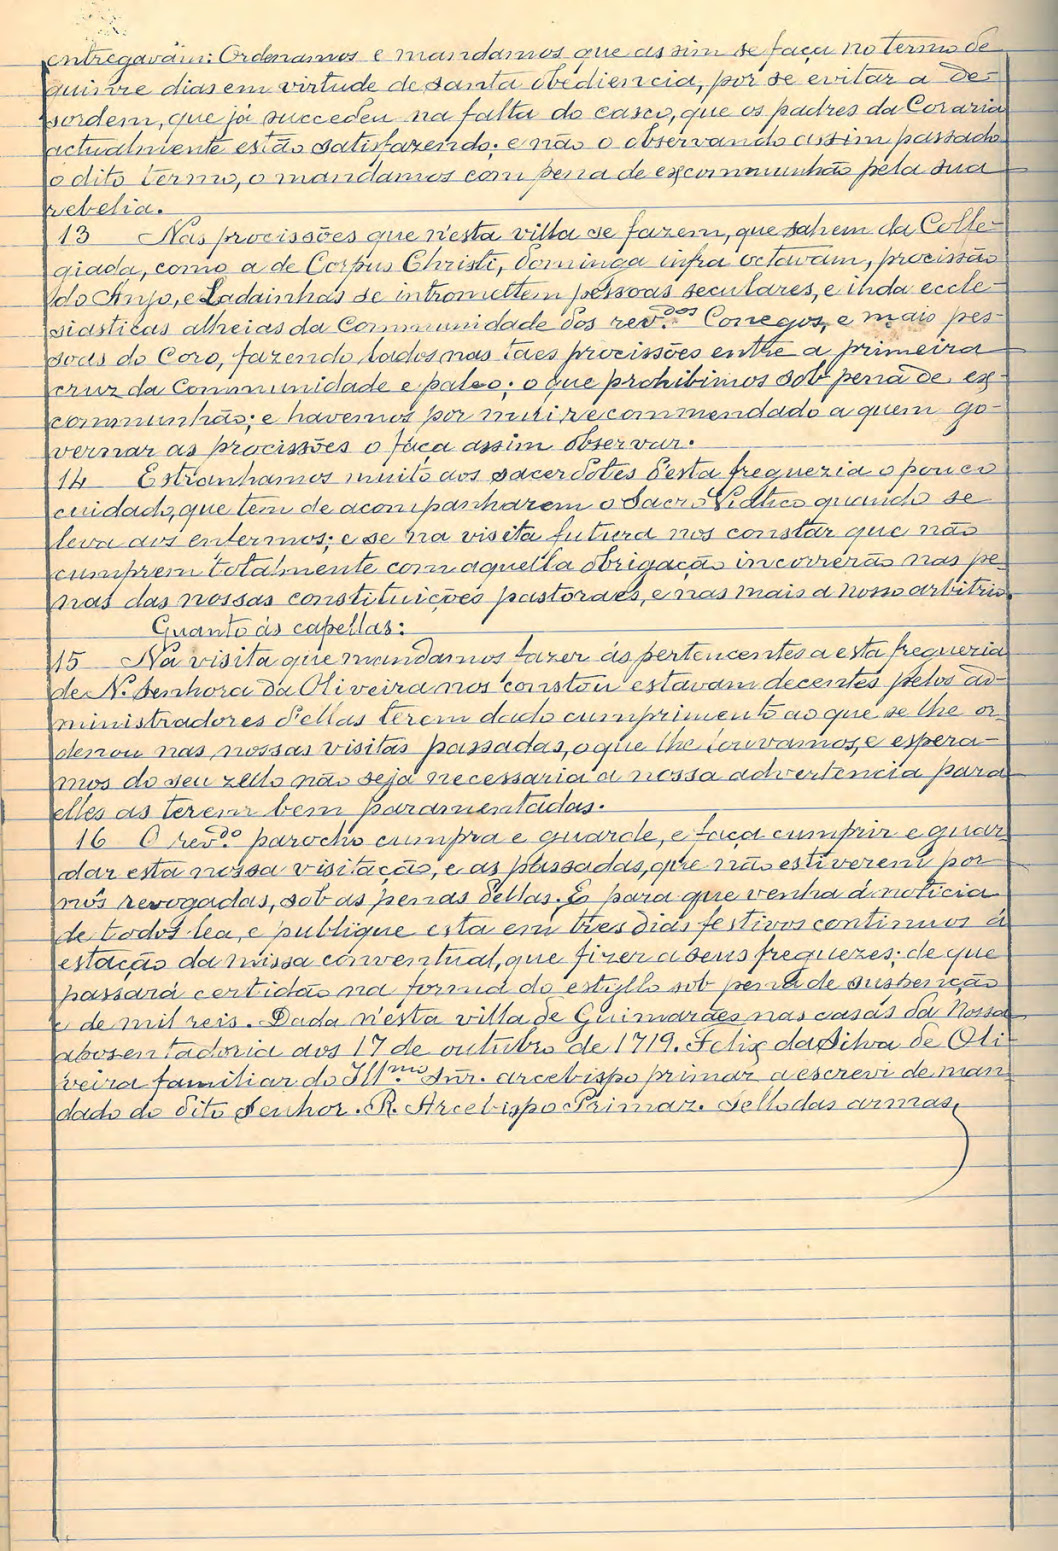 entregavam: Ordenamos e mandamos que assim se faça no termo de
quinze dias em virtude de santa obediencia, por se evitar a de-
sordem, que já succedeu na falta do casco, que os padres da Coraria
actualmente estão satisfazendo; e não o observando assim passado
o dito termo, o mandamos com pena de excommunhão pela sua
rebelia.
13 Nas procissões que n'esta villa se fazem, que sahem da Colle-
giada, como a de Corpus Christi, dominga infra octavam, procissão
do Anjo, e Ladainhas se intromettem pessoas seculares, e inda eccle-
siasticas alheias da Communidade dos rev.dos Conegos, e mais pes-
soas do Coro, fazendo lados nas taes procissões entre a primeira
cruz da Communidade e paleo; o que prohibimos sob pena de ex-
communhão; e havemos por mui recommendado a quem go-
vernar as procissões o faça assim observar.
14 Estranhamos muito aos sacerdotes d'esta freguezia o pouco
cuidado, que tem de acompanharem o Sacro Viatico quando se
leva aos enfermos; e se na visita futura nos constar que não
cumprem totalmente com aquella obrigação incorrerão nas pe-
nas das nossas constituições pastoraes, e nas mais a nosso arbitrio.
Quanto ás capellas:
15 Na visita que mandamos fazer ás pertencentes a esta freguezia
de N. Senhora da Oliveira nos constou estavam decentes pelos ad-
ministradores d'ellas terem dado cumprimento ao que se lhe or-
denou nas nossas visitas passadas, o que lhe louvamos, e espera-
mos do seu zello não seja necessaria a nossa advertencia para
elles as terem bem paramentadas.
16 O rev.do parocho cumpra e guarde, e faça cumprir e guar
dar esta nossa visitação, e as passadas, que não estiverem por
nós revogadas, sob as penas d'ellas. E para que venha á noticia
de todos lea, e publique esta em tres dias festivos continuos á
estação da missa conventual, que fizer a seus freguezes; de que
passará certidão na forma do estyllo sob pena de suspenção
e de mil reis. Dada n'esta villa de Guimarães nas casas da Nossa
aposentadoria aos 17 de outubro de 1719. Felix da Silva de Oli-
veira familiar do Ill.mo Snr. arcebispo primaz a escrevi de man
dado do dito Senhor. R. Arcebispo Primaz. Sello das armas,